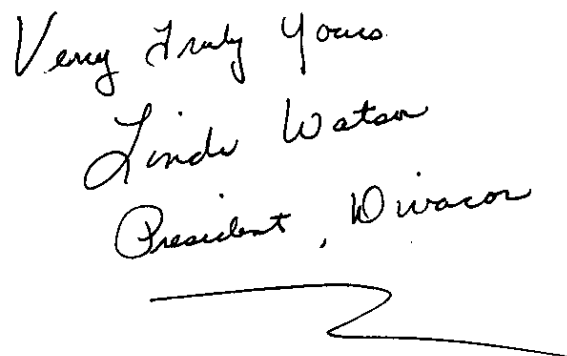 Very Truly Yours
Linda Watson
President, Divacor